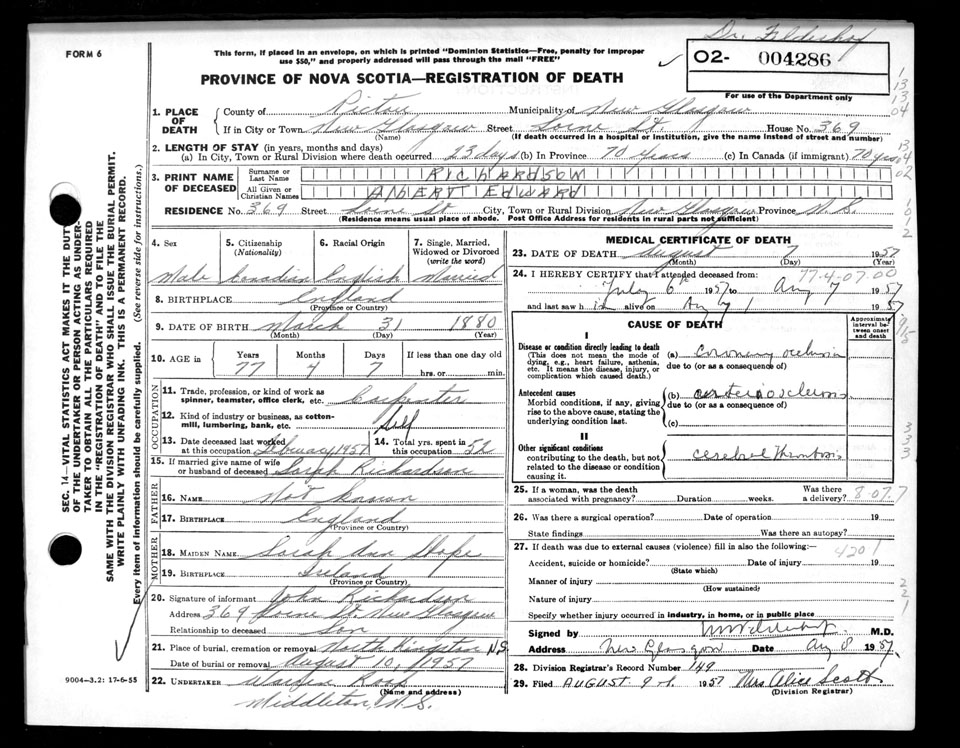 Dr. Felderhof
FORM 6
This form, if placed in an envelope, on which is printed "Dominion Statistics—Free, penalty for improper
use $50," and properly addressed will pass through the mail "FREE"
02- 004286
For use of the Department only
PROVINCE OF NOVA SCOTIA—REGISTRATION OF DEATH
1. PLACE OF DEATH
County of Pictou Municipality of New Glasgow
If in City or Town New Glasgow Street St. House No. 369
(Name) (If death occurred in a hospital or institution, give the name instead of street and number)
2. LENGTH OF STAY (in years, months and days)
(a) In City, Town or Rural Division where death occurred 23 days (b) In Province 70 years (c) In Canada (if immigrant) 70 yrs
3. PRINT NAME OF DECEASED
Surname or Last Name RICHARDSON
All Given or Christian Names EDWARD
RESIDENCE No. 369 Street St City, Town or Rural Division New Glasgow Province N.S.
(Residence means usual place of abode. Post Office Address for residents in rural parts not sufficient)
4. Sex Male
5. Citizenship (Nationality) Canadian
6. Racial Origin English
7. Single, Married, Widowed or Divorced (write the word) Married
8. BIRTHPLACE England
(Province or Country)
9. DATE OF BIRTH March 31 1880
(Month) (Day) (Year)
10. AGE in Years Months Days If less than one day old
77 4 7 hrs. or min.
OCCUPATION
11. Trade, profession, or kind of work as spinner, teamster, office clerk, etc. Carpenter
12. Kind of industry or business, as cotton-mill, lumbering, bank, etc. Self
13. Date deceased last worked at this occupation February 1957
14. Total yrs. spent in this occupation 52
15. If married give name of wife or husband of deceased Sarah Richardson
FATHER
16. NAME Not known
17. BIRTHPLACE England
(Province or Country)
MOTHER
18. MAIDEN NAME Sarah Ann Hope
19. BIRTHPLACE Ireland
(Province or Country)
20. Signature of informant John Richardson
Address 369 St. New Glasgow
Relationship to deceased son
21. Place of burial, cremation or removal North Kingston N.S.
Date of burial or removal August 10, 1957
22. UNDERTAKER Warren Roop
(Name and address)
Middleton, N.S.
MEDICAL CERTIFICATE OF DEATH
23. DATE OF DEATH August 7 1957
(Month) (Day) (Year)
77-4-07.00
24. I HEREBY CERTIFY that I attended deceased from:
July 6th 1957 to Aug 7 1957
and last saw him alive on Aug 7 1957
CAUSE OF DEATH
Approximate interval between onset and death
I
Disease or condition directly leading to death
(This does not mean the mode of dying, e.g., heart failure, asthenia, etc. It means the disease, injury, or complication which caused death.)
(a) Coronary occlusion
due to (or as a consequence of)
Antecedent causes
Morbid conditions, if any, giving rise to the above cause, stating the underlying condition last.
(b) arteriosclerosis
due to (or as a consequence of)
(c)
II
Other significant conditions
contributing to the death, but not related to the disease or condition causing it.
cerebral thrombosis
25. If a woman, was the death associated with pregnancy? Duration weeks. Was there a delivery?
8-07.7
26. Was there a surgical operation? Date of operation 19
State findings Was there an autopsy?
27. If death was due to external causes (violence) fill in also the following:—
4201
Accident, suicide or homicide? Date of injury 19
(State which)
Manner of injury
(How sustained)
Nature of injury
Specify whether injury occurred in industry, in home, or in public place
Signed by M.D.
Address New Glasgow Date Aug 8 1957
28. Division Registrar's Record Number 149
29. Filed AUGUST 9th 1957 Mrs Alice Scott
(Division Registrar)
SEC. 14—VITAL STATISTICS ACT MAKES IT THE DUTY
OF THE UNDERTAKER OR PERSON ACTING AS UNDER-
TAKER TO OBTAIN ALL THE PARTICULARS REQUIRED
IN THE "REGISTRATION OF DEATH" AND TO FILE THE
SAME WITH THE DIVISION REGISTRAR WHO SHALL ISSUE THE BURIAL PERMIT.
WRITE PLAINLY WITH UNFADING INK. THIS IS A PERMANENT RECORD.
Every item of information should be carefully supplied. (See reverse side for instructions.)
9004—3.2: 17-6-55